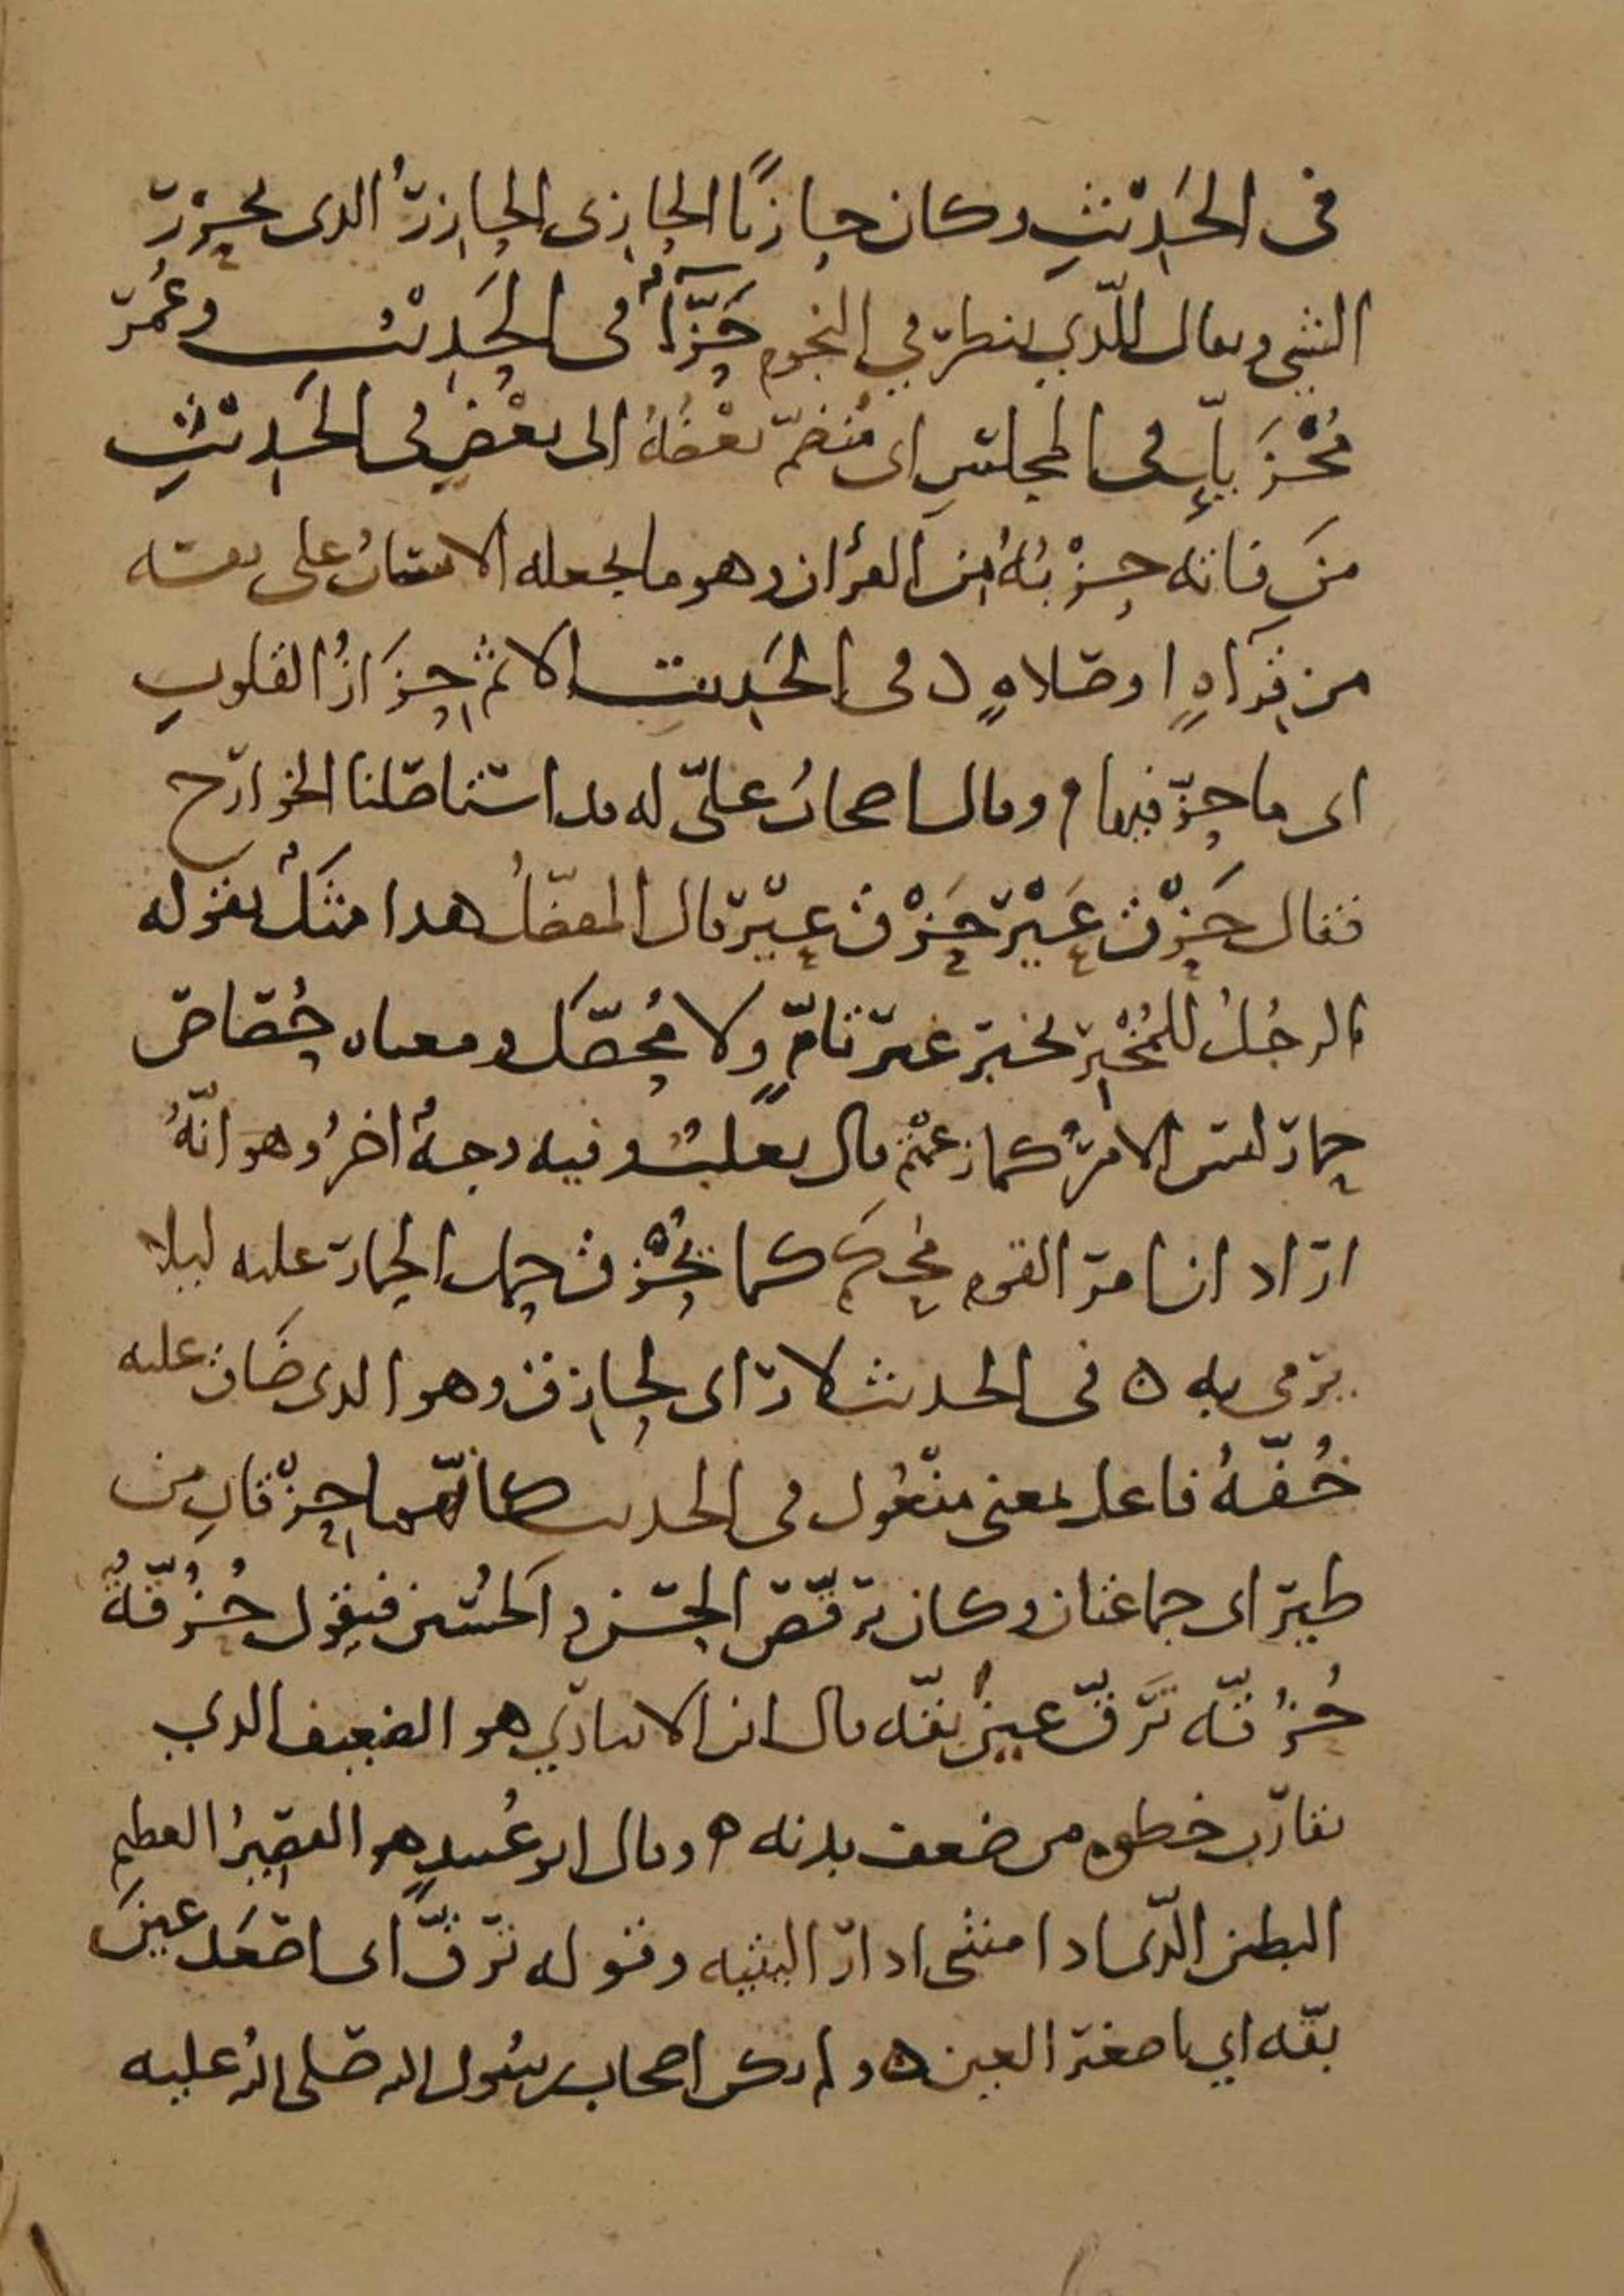 في الحَدِيْثِ وكان حازيًا الحازى الحازرُ الذى يحزر
الشيء ويقال للّذي ينظر في النجوم حَزَّآءٌ في الحَدِيْثِ وعُمَر
مُحْزَ بإِ في المجلسِ اى مُنضمّ بعْضُهُ الى بعْضٍ في الحَدِيْثِ
منَ فاته حِزْبُهُ من القرأن وهو ما يجعله الانسانُ على نفسه
من قِرَاةٍ او صَلاةٍ ۵ في الحَدِيث الاثمُ حَوَازُ القلوبِ
اى ما حزّ فيها ۵ وقال اصحابُ علىّ له قد استاصَلنا الخوارج
فقال حَزْقُ عَيْرٍ حَزْقُ عَيْرٍ قال المفضّلُ هذا مَثَلٌ يقوله
الرجُلُ للمُخْبِر بخبر غير تامٍّ ولا مُحصَّل ومعناه حُصَاصُ
حمار ليس الامرُ كما زعمْتم قال ثعلبُ وفيه وجهٌ اخرُ وهو انّهُ
اراد ان امر القوم مُحكم كما يُحْزَقُ حمل الحمار عليه ليلا
يرمى به ۵ في الحديث لا رأى لحازق وهو الذى ضَاق عليه
خُفّهُ فاعل بمعنى مفْعُول في الحديث كانّهما حِزْقانِ من
طير اى جماعتان وكان يرقّص الحسن والحُسَين فيقول حُزُقّةٌ
حُزُقّه تَرَقَّ عين بقّه قال ابن الانباري هو الضعيف الذي
تقارب خطوه من ضعف بدنه ۵ وقال ابو عُبيدٍ هو القصيرُ العظيم
البطن الّذى اذا مشى ادار اليتيه وقوله ترقَّ اى اصْعَد عينَ
بقّه اي يا صغير العين ۵ ولم يكن اصحاب رسُول الله صَلى الله عليه